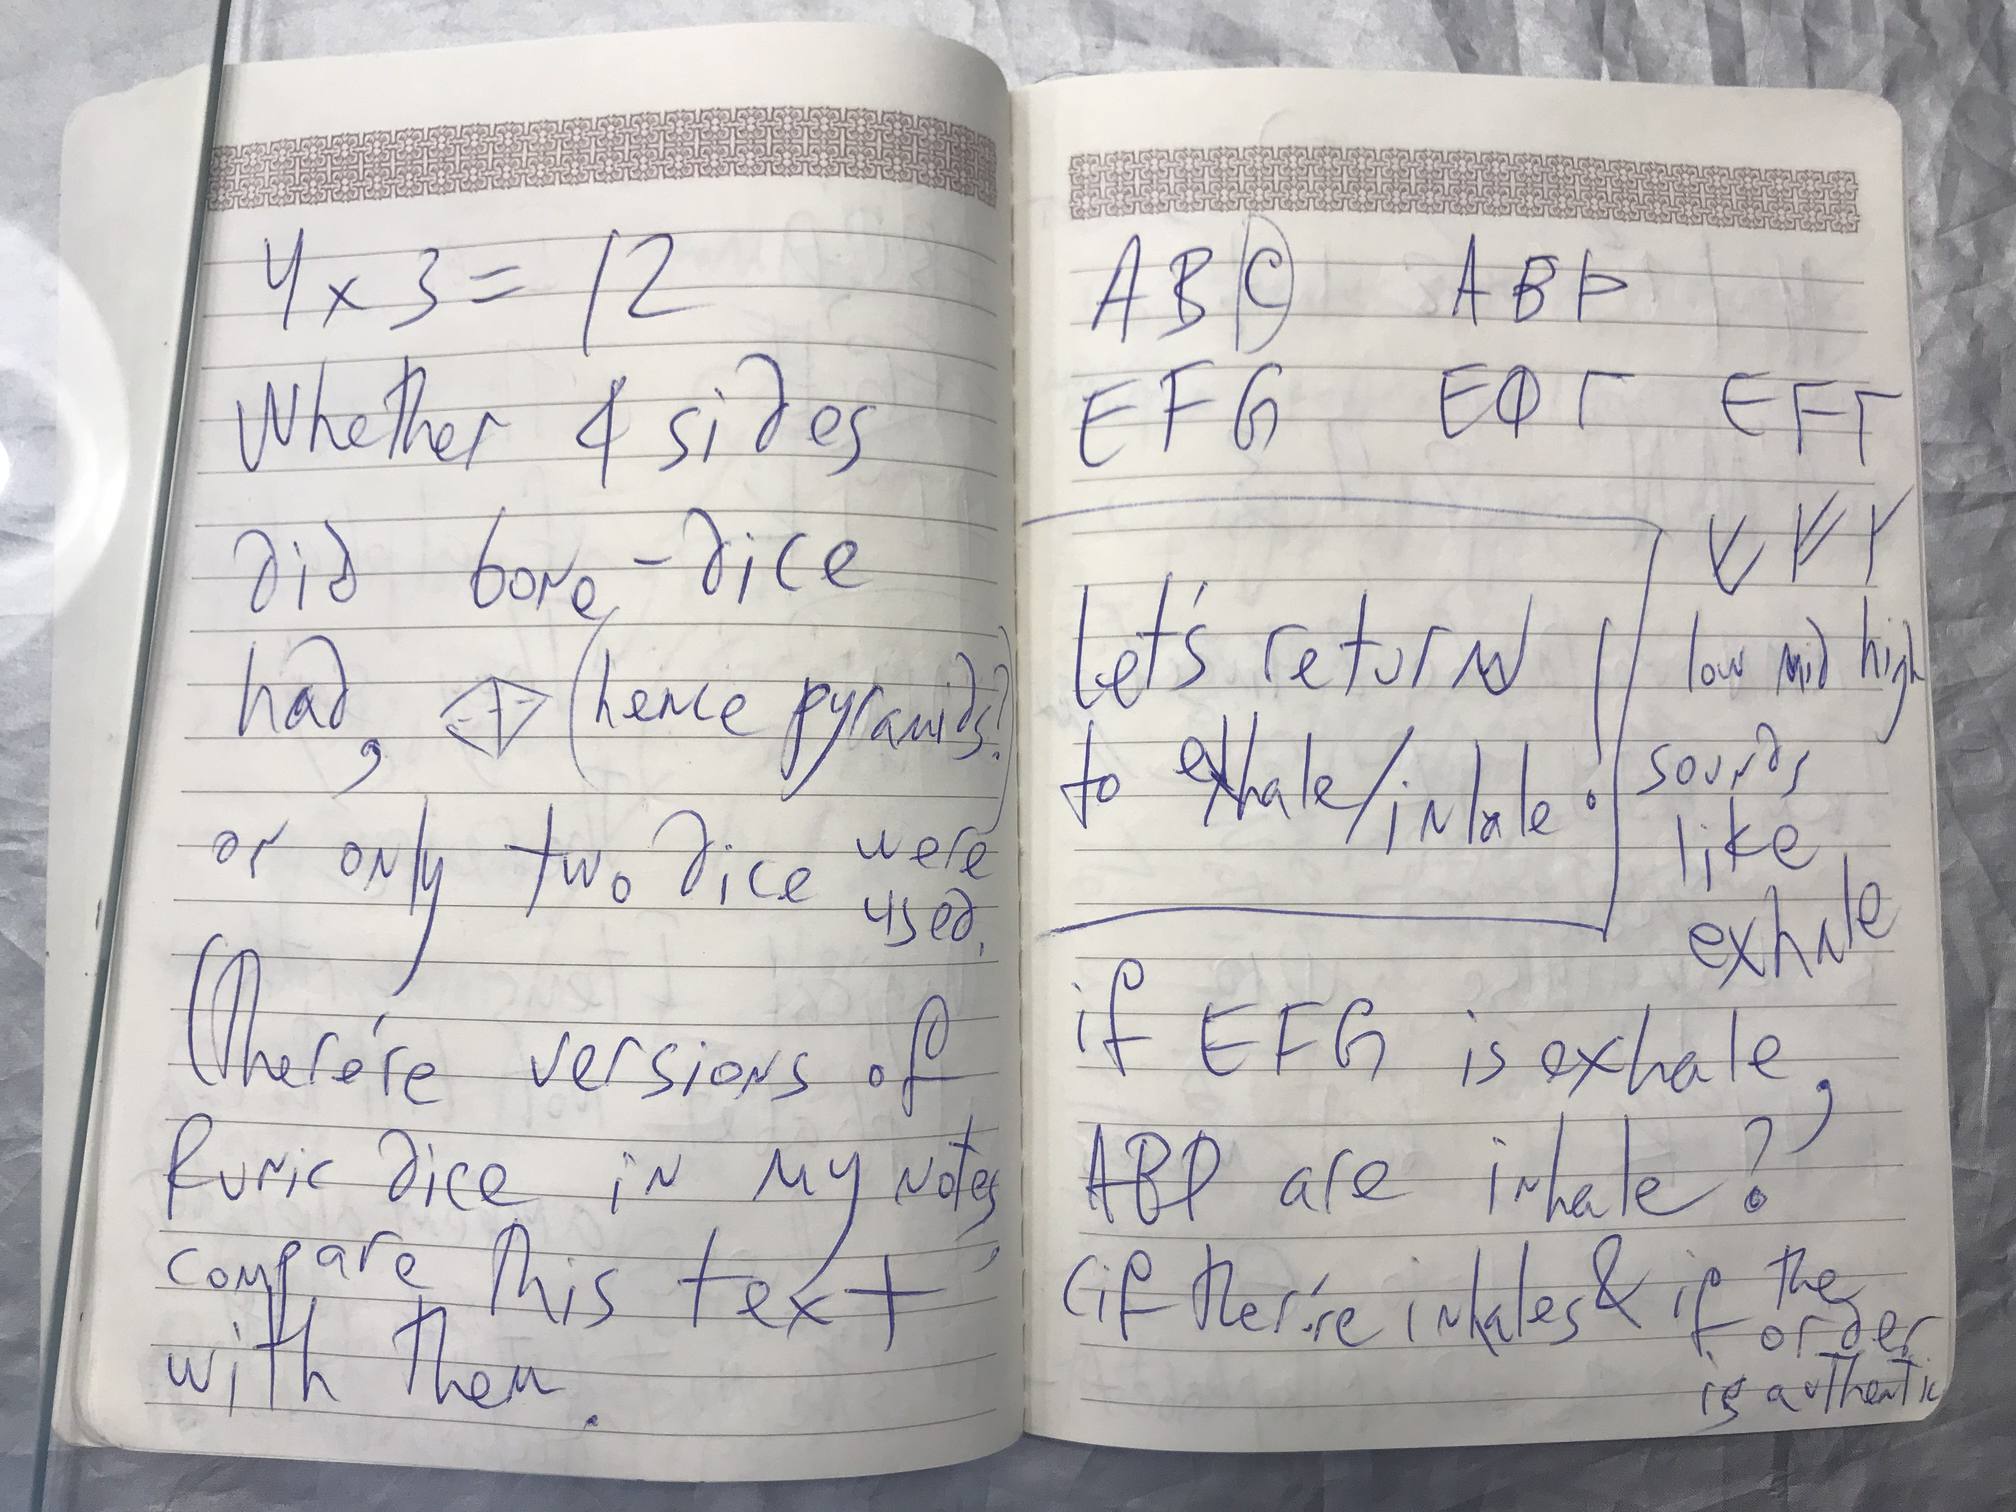 4 x 3 = 12
Whether 4 sides
did bone-dice
had, (hence pyramids?)
or only two dice were
used.
(There're versions of
Runic dice in my notes,
compare this text
with them.
ABC ABÞ
EFG EФГ EFГ
V V Y
low mid high
sounds
like
exhale
Let's return
to exhale/inhale!
if EFG is exhale,
ABD are inhale?
(if there're inhales & if the
order
is authentic